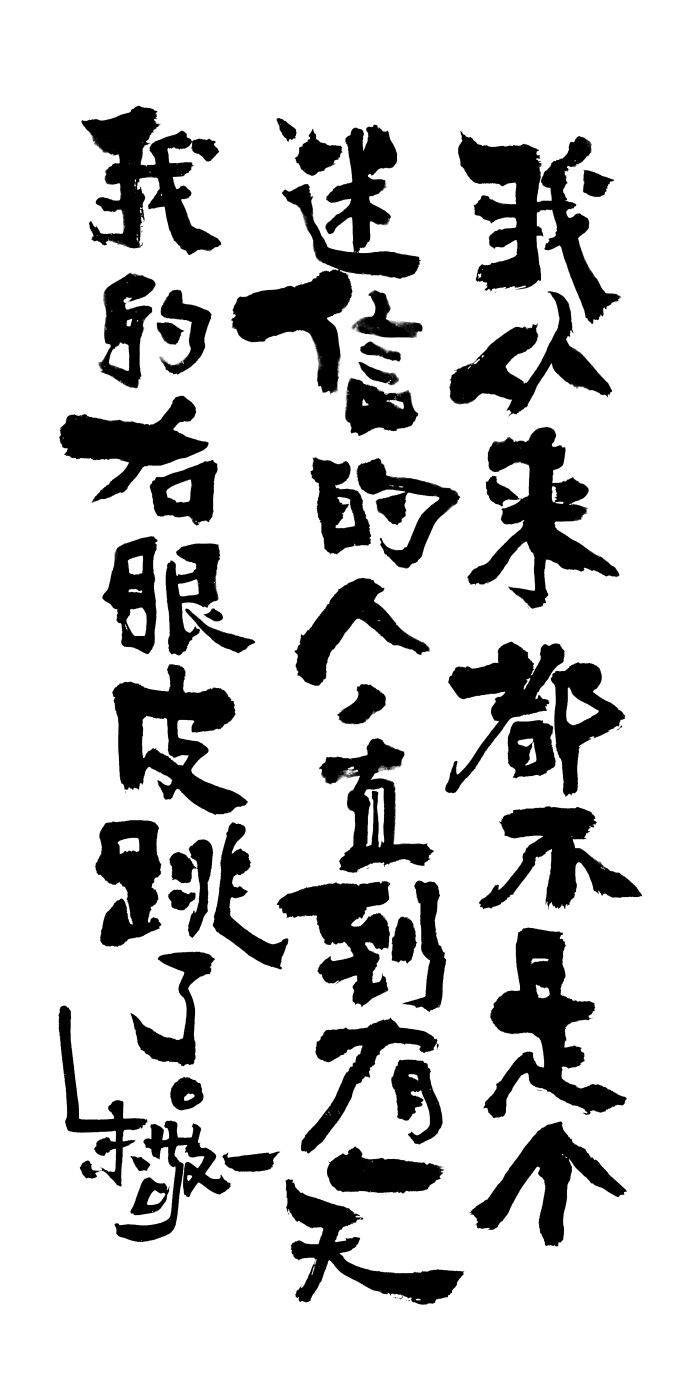 我从来都不是个
迷信的人，直到有一天
我的右眼皮跳了。
朱敬一